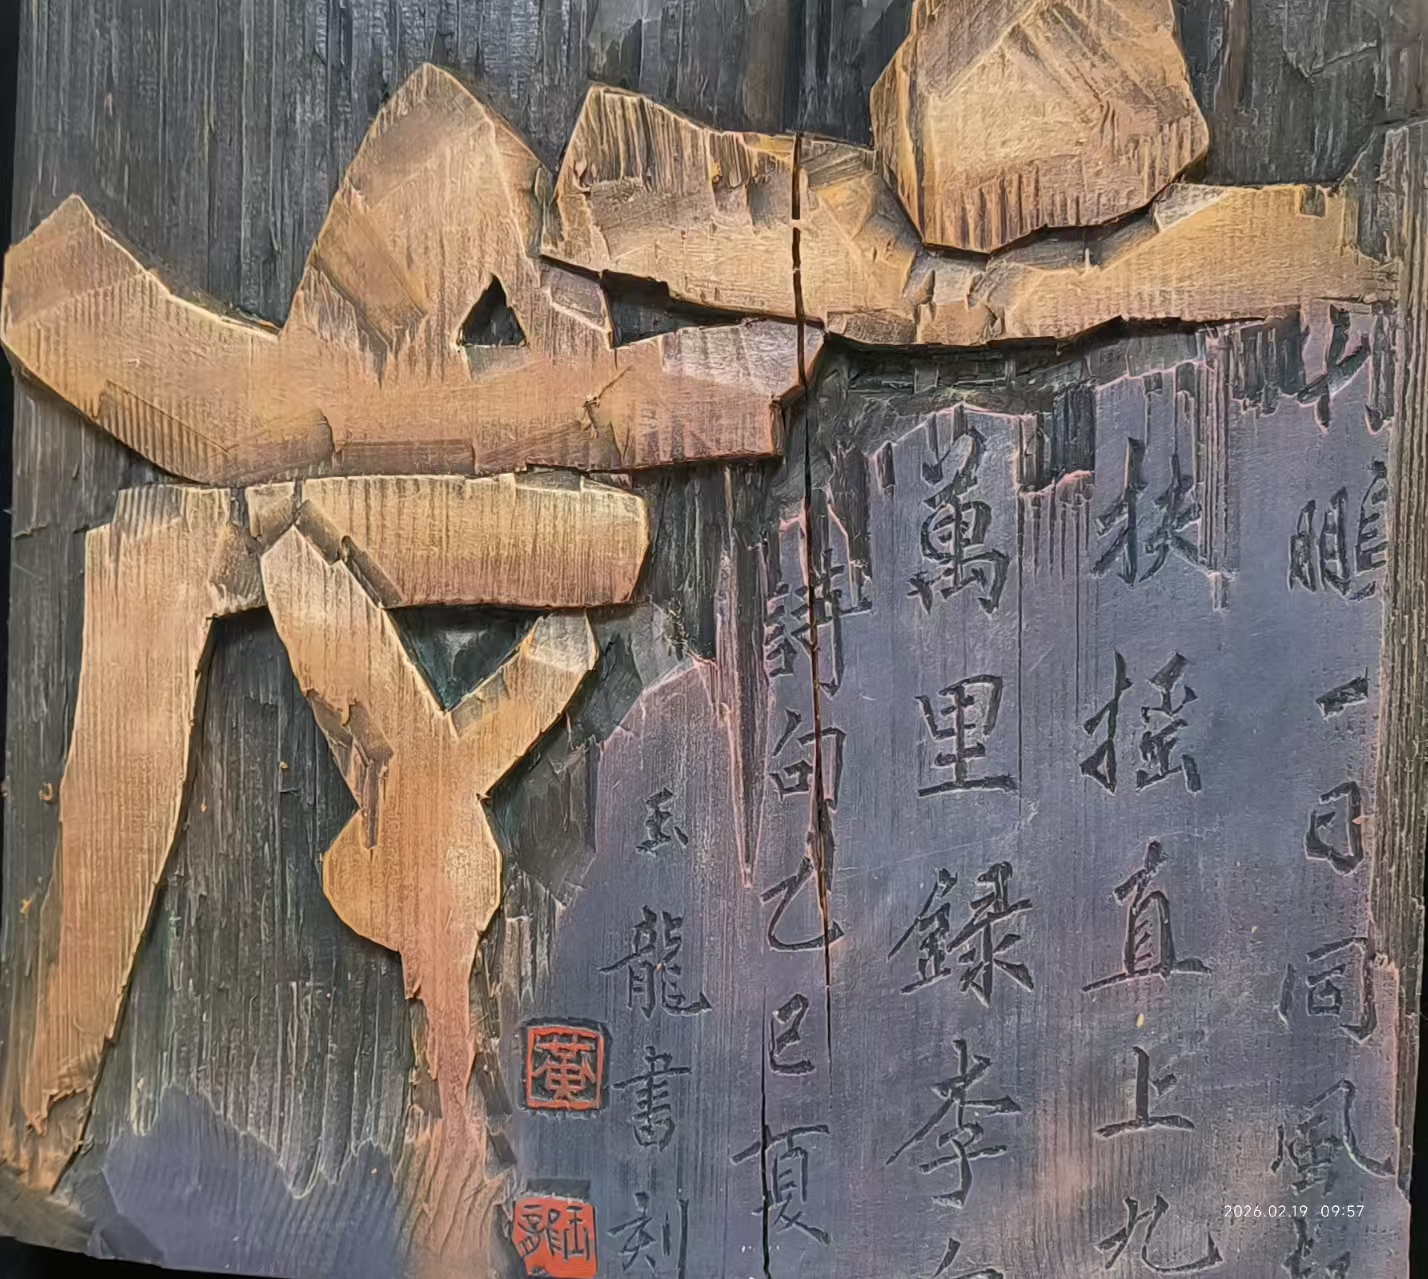 鵬一日同風
扶搖直上九
萬里録李
詩句乙巳夏
玉龍書刻
黃
玉龍
2026.02.19 09:57